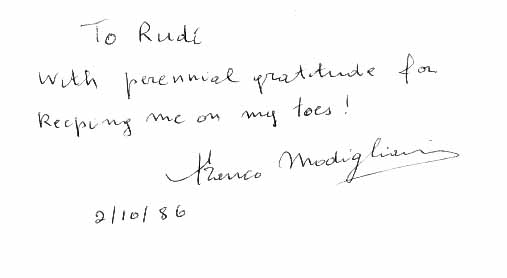 To Rudi
With perennial gratitude for
keeping me on my toes!
Franco Modigliani
2/10/86